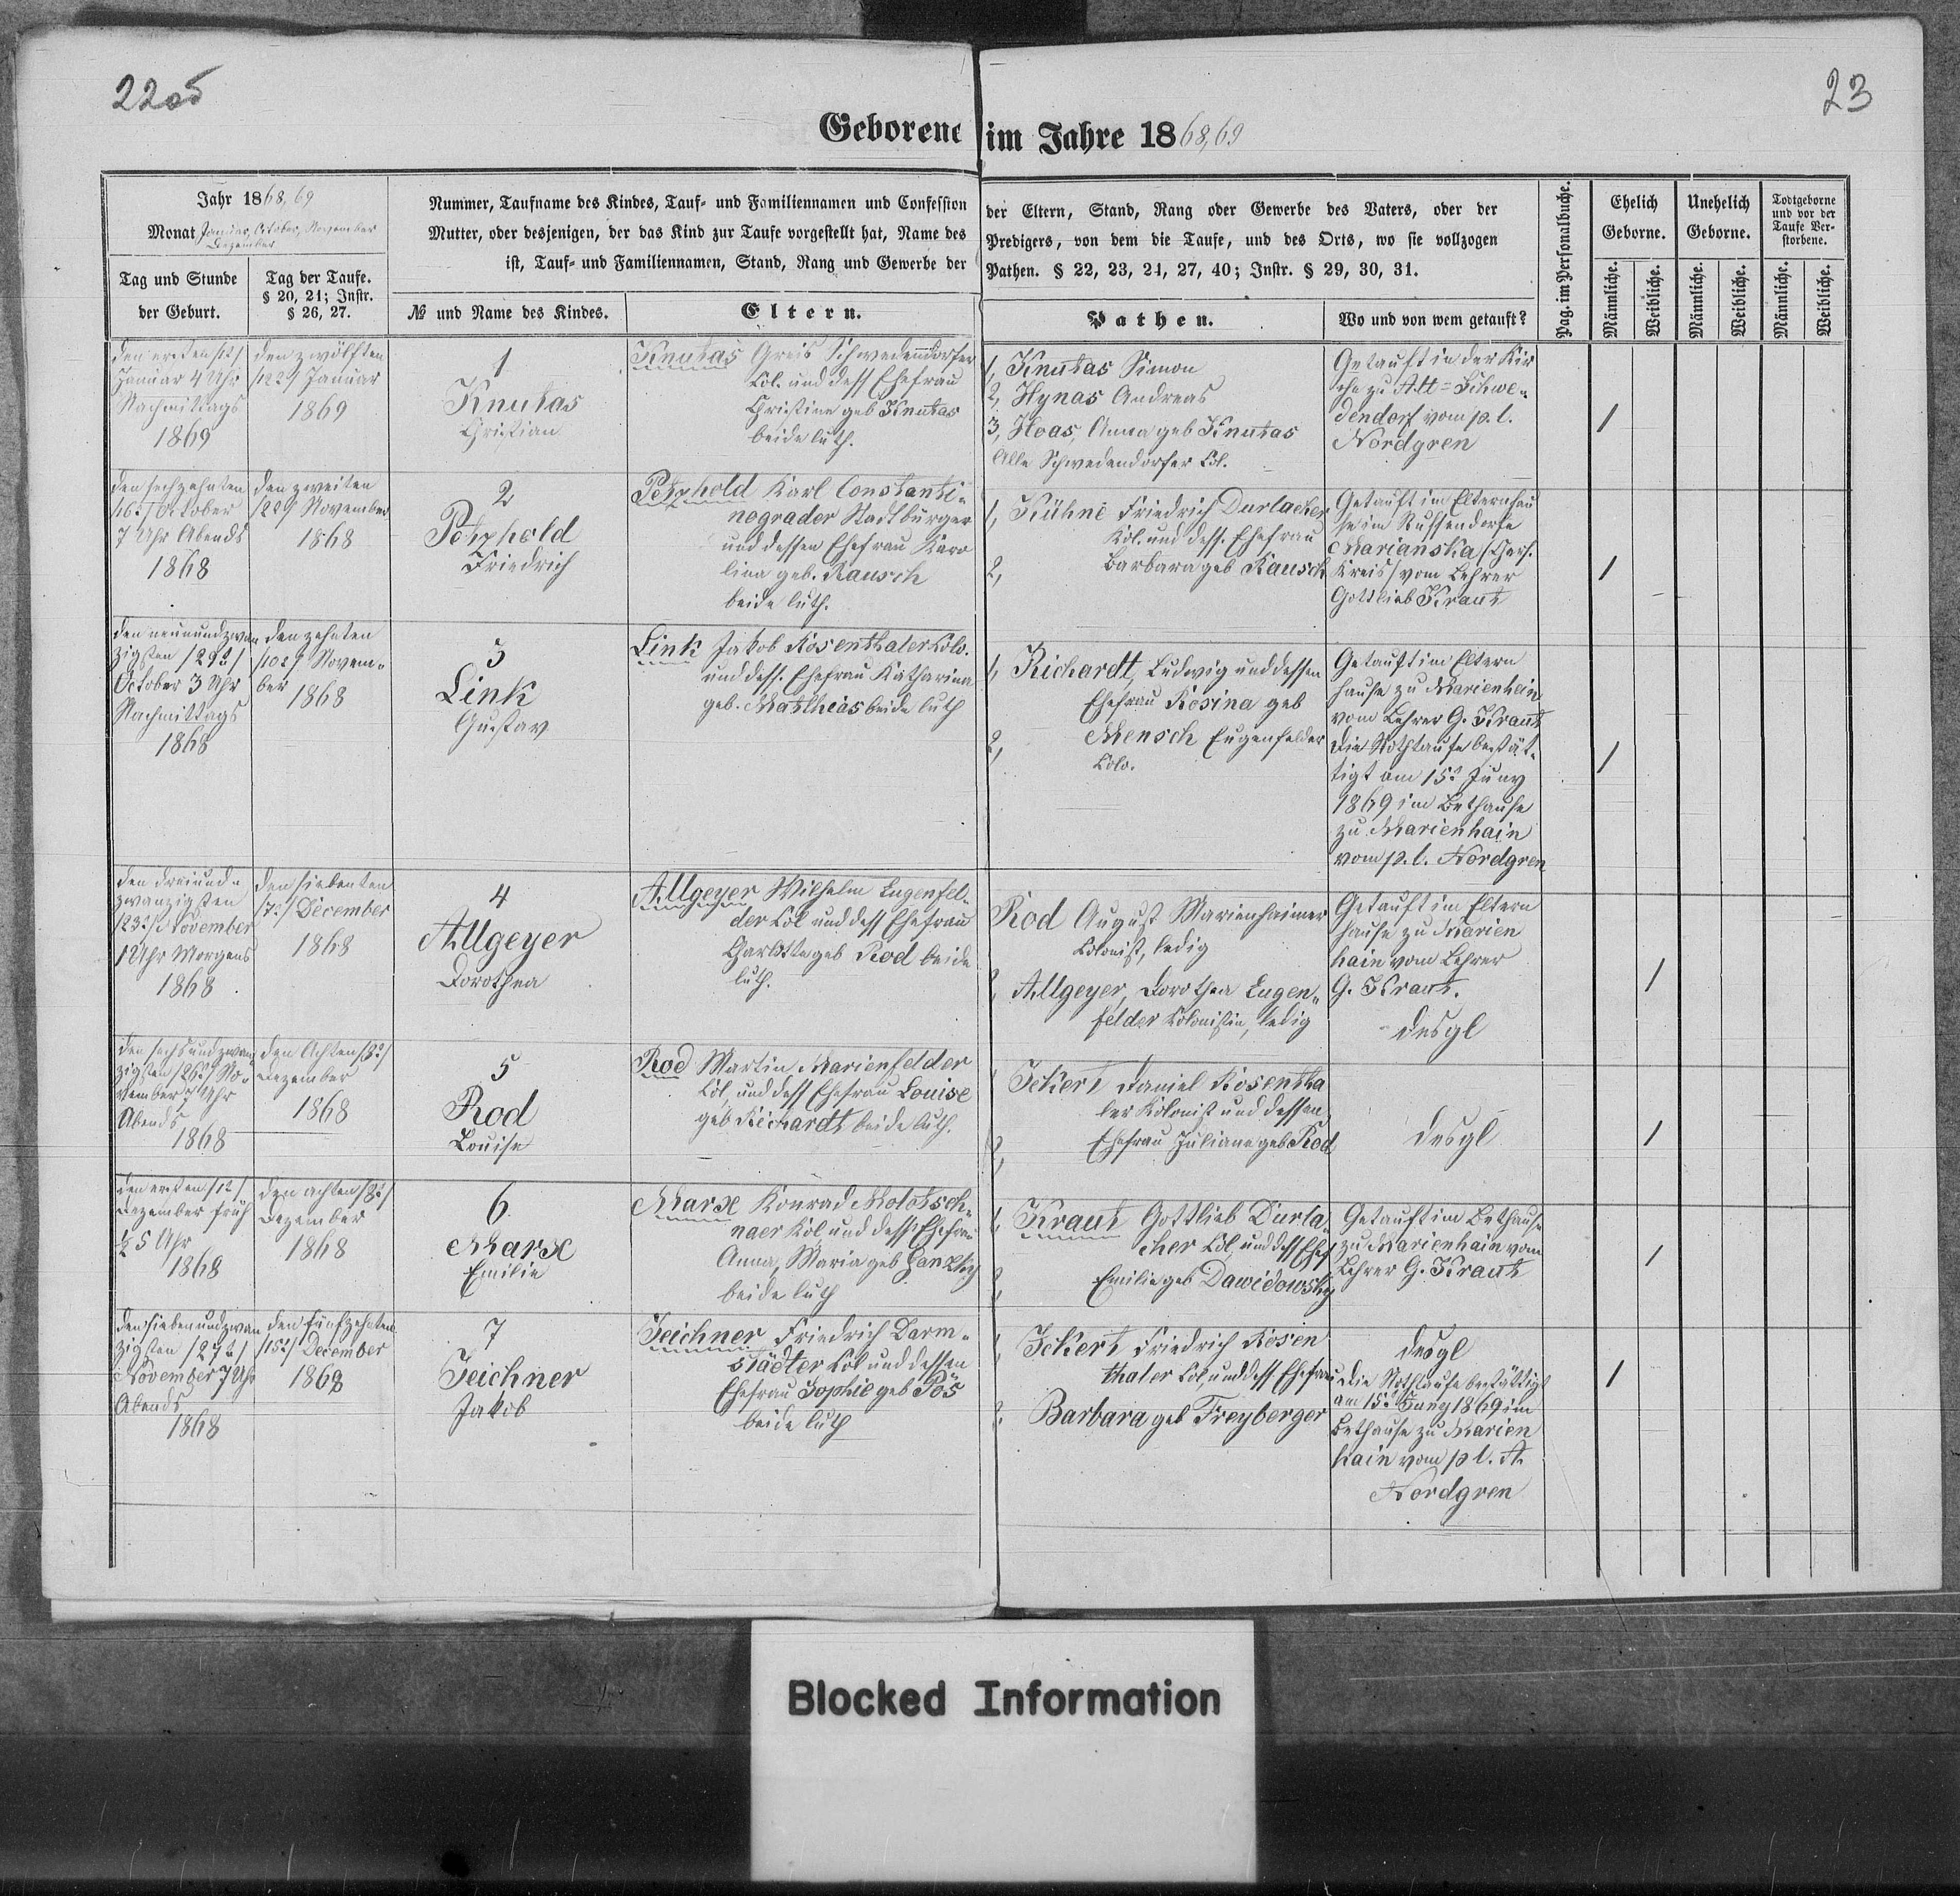 22об
23
Geborene im Jahre 1868,69
Jahr 1868,69
Monat Januar, October, November
Dezember
Tag und Stunde
der Geburt.
Tag der Taufe.
§ 20, 21; Instr.
§ 26, 27.
Nummer, Taufname des Kindes, Tauf- und Familiennamen und Confession
Mutter, oder desjenigen, der das Kind zur Taufe vorgestellt hat, Name des
ist, Tauf- und Familiennamen, Stand, Rang und Gewerbe der
№ und Name des Kindes.
Eltern.
der Eltern, Stand, Rang oder Gewerbe des Vaters, oder der
Predigers, von dem die Taufe, und des Orts, wo sie vollzogen
Pathen. § 22, 23, 24, 27, 40; Instr. § 29, 30, 31.
Pathen.
Wo und von wem getauft?
Pag. im Personalbuche.
Ehelich
Geborne.
Unehelich
Geborne.
Todtgeborne
und vor der
Taufe Ver-
storbene.
Männliche.
Weibliche.
Männliche.
Weibliche.
Männliche.
Weibliche.
den ersten /1t/
Januar 4 Uhr
Nachmittags
1869
den zwölften
/12t/ Januar
1869
1
Knutas
Christian
Knutas Greis Schwedendorfer
Col. und dess Ehefrau
Christina geb Knutas
beide luth.
1, Knutas Simon
2, Hynas Andreas
3, Hoas, Anna geb Knutas
Alle Schwedendorfer Col.
Getauft in der Kir
che zu Alt=Schwe=
dendorf vom p. l.
Nordgren
1
den sechzehnten
/16t/ October
7 Uhr Abends
1868
den zweiten
/2t/ November
1868
2
Petzhold
Friedrich
Petzhold Karl Constanti=
nograder Stadtbürger
und dessen Ehefrau Karo
lina geb. Rausch
beide luth.
1, Kühne Friedrich Durlacher
Kol. und dess. Ehefrau
2, Barbara geb Rausch
Getauft im Elternhau
se im Russendorfe
Marianska /Chars.
Kreis/ vom Lehrer
Gottlieb Kraut
1
den neunundzwan
zigsten /29t/
October 3 Uhr
Nachmittags
1868
den zehnten
/10t/ Novem=
ber 1868
3
Link
Gustav
Link Jakob Rosenthaler Colo.
und dess. Ehefrau Katharina
geb. Matthias beide luth
1, Richardt, Ludwig und dessen
Ehefrau Rosina geb
2, Mensch Eugenfelder
Colo.
Getauft im Eltern
hause zu Marienhein
vom Lehrer G. Kraut
Die Nothtaufe bestät=
tigt am 15t Juny
1869 im Bethause
zu Marienhain
vom p. l. Nordgren
1
den dreiund=
zwanzigsten
/23t/ November
1 Uhr Morgens
1868
den siebenten
/7t/ December
1868
4
Allgeyer
Dorothea
Allgeyer Wilhelm Eugenfel=
der Col und dess Ehefrau
Charlotte geb Rod beide
luth.
Rod August Marienhaimer
Colonist, ledig
2, Allgeyer, Dorothea Eugen=
felder Colonistin, ledig
Getauft im Eltern
hause zu Marien
hain vom Lehrer
G. Kraut.
desgl
1
den sechsundzwan
zigsten /26t/ No=
vember 7 Uhr
Abends
1868
den Achten /8t/
Dezember
1868
5
Rod
Louise
Rod Martin Marienfelder
Col, und dess Ehefrau Louise
geb Richardt beide luth.
Ickert Daniel Rosentha
ler Kolonist und dessen
2, Ehefrau Juliana geb Rod
desgl
1
den ersten /1t/
Dezember früh
½5 Uhr
1868
den achten /8t/
Dezember
1868
6
Marx
Emilie
Marx Konrad Molotsch=
naer Kol und dess Ehefrau
Anna, Maria geb Janzky
beide luth
1, Kraut Gottlieb Durla
cher Col, und dess Ehef
2, Emilie geb Dawidowsky
Getauft im Bethause
zu Marienhain vom
Lehrer G. Kraut
1
den siebenundzwan
zigsten /27t/
November 7 Uhr
Abends
1868
den fünfzehnten
/15t/ December
1868
7
Teichner
Jakob
Teichner Friedrich Darm=
städter Col und dessen
Ehefrau Sophie geb Pös
beide luth
1, Ickert Friedrich Rosen
thaler Col, und dess Ehefrau
2, Barbara geb Freyberger
desgl
Die Nothtaufe bestättigt
am 15t Juny 1869 im
Bethause zu Marien
hain vom p l. A.
Nordgren
1
Blocked Information